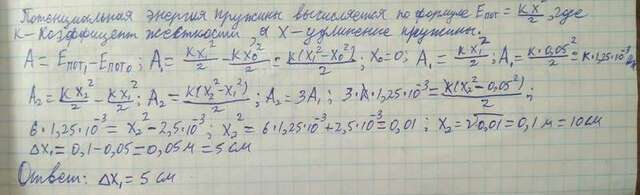 Потенциальная энергия пружины вычисляется по формуле Eпот = kx²/2, где
k - коэффицент жесткности, а x - удлинение пружины.
A = Eпот₁ - Eпот₀; A₁ = kx₁²/2 - kx₀²/2 = k(x₁² - x₀²)/2; x₀ = 0; A₁ = kx₁²/2; A₁ = k·0,05²/2 = k·1,25·10⁻³ Дж
A₂ = kx₂²/2 - kx₁²/2; A₂ = k(x₂² - x₁²)/2; A₂ = 3A₁; 3·k·1,25·10⁻³ = k(x₂² - 0,05²)/2;
6·1,25·10⁻³ = x₂² - 2,5·10⁻³; x₂² = 6·1,25·10⁻³ + 2,5·10⁻³ = 0,01; x₂ = √0,01 = 0,1 м = 10 см
Δx₁ = 0,1 - 0,05 = 0,05 м = 5 см
Ответ: Δx₁ = 5 см